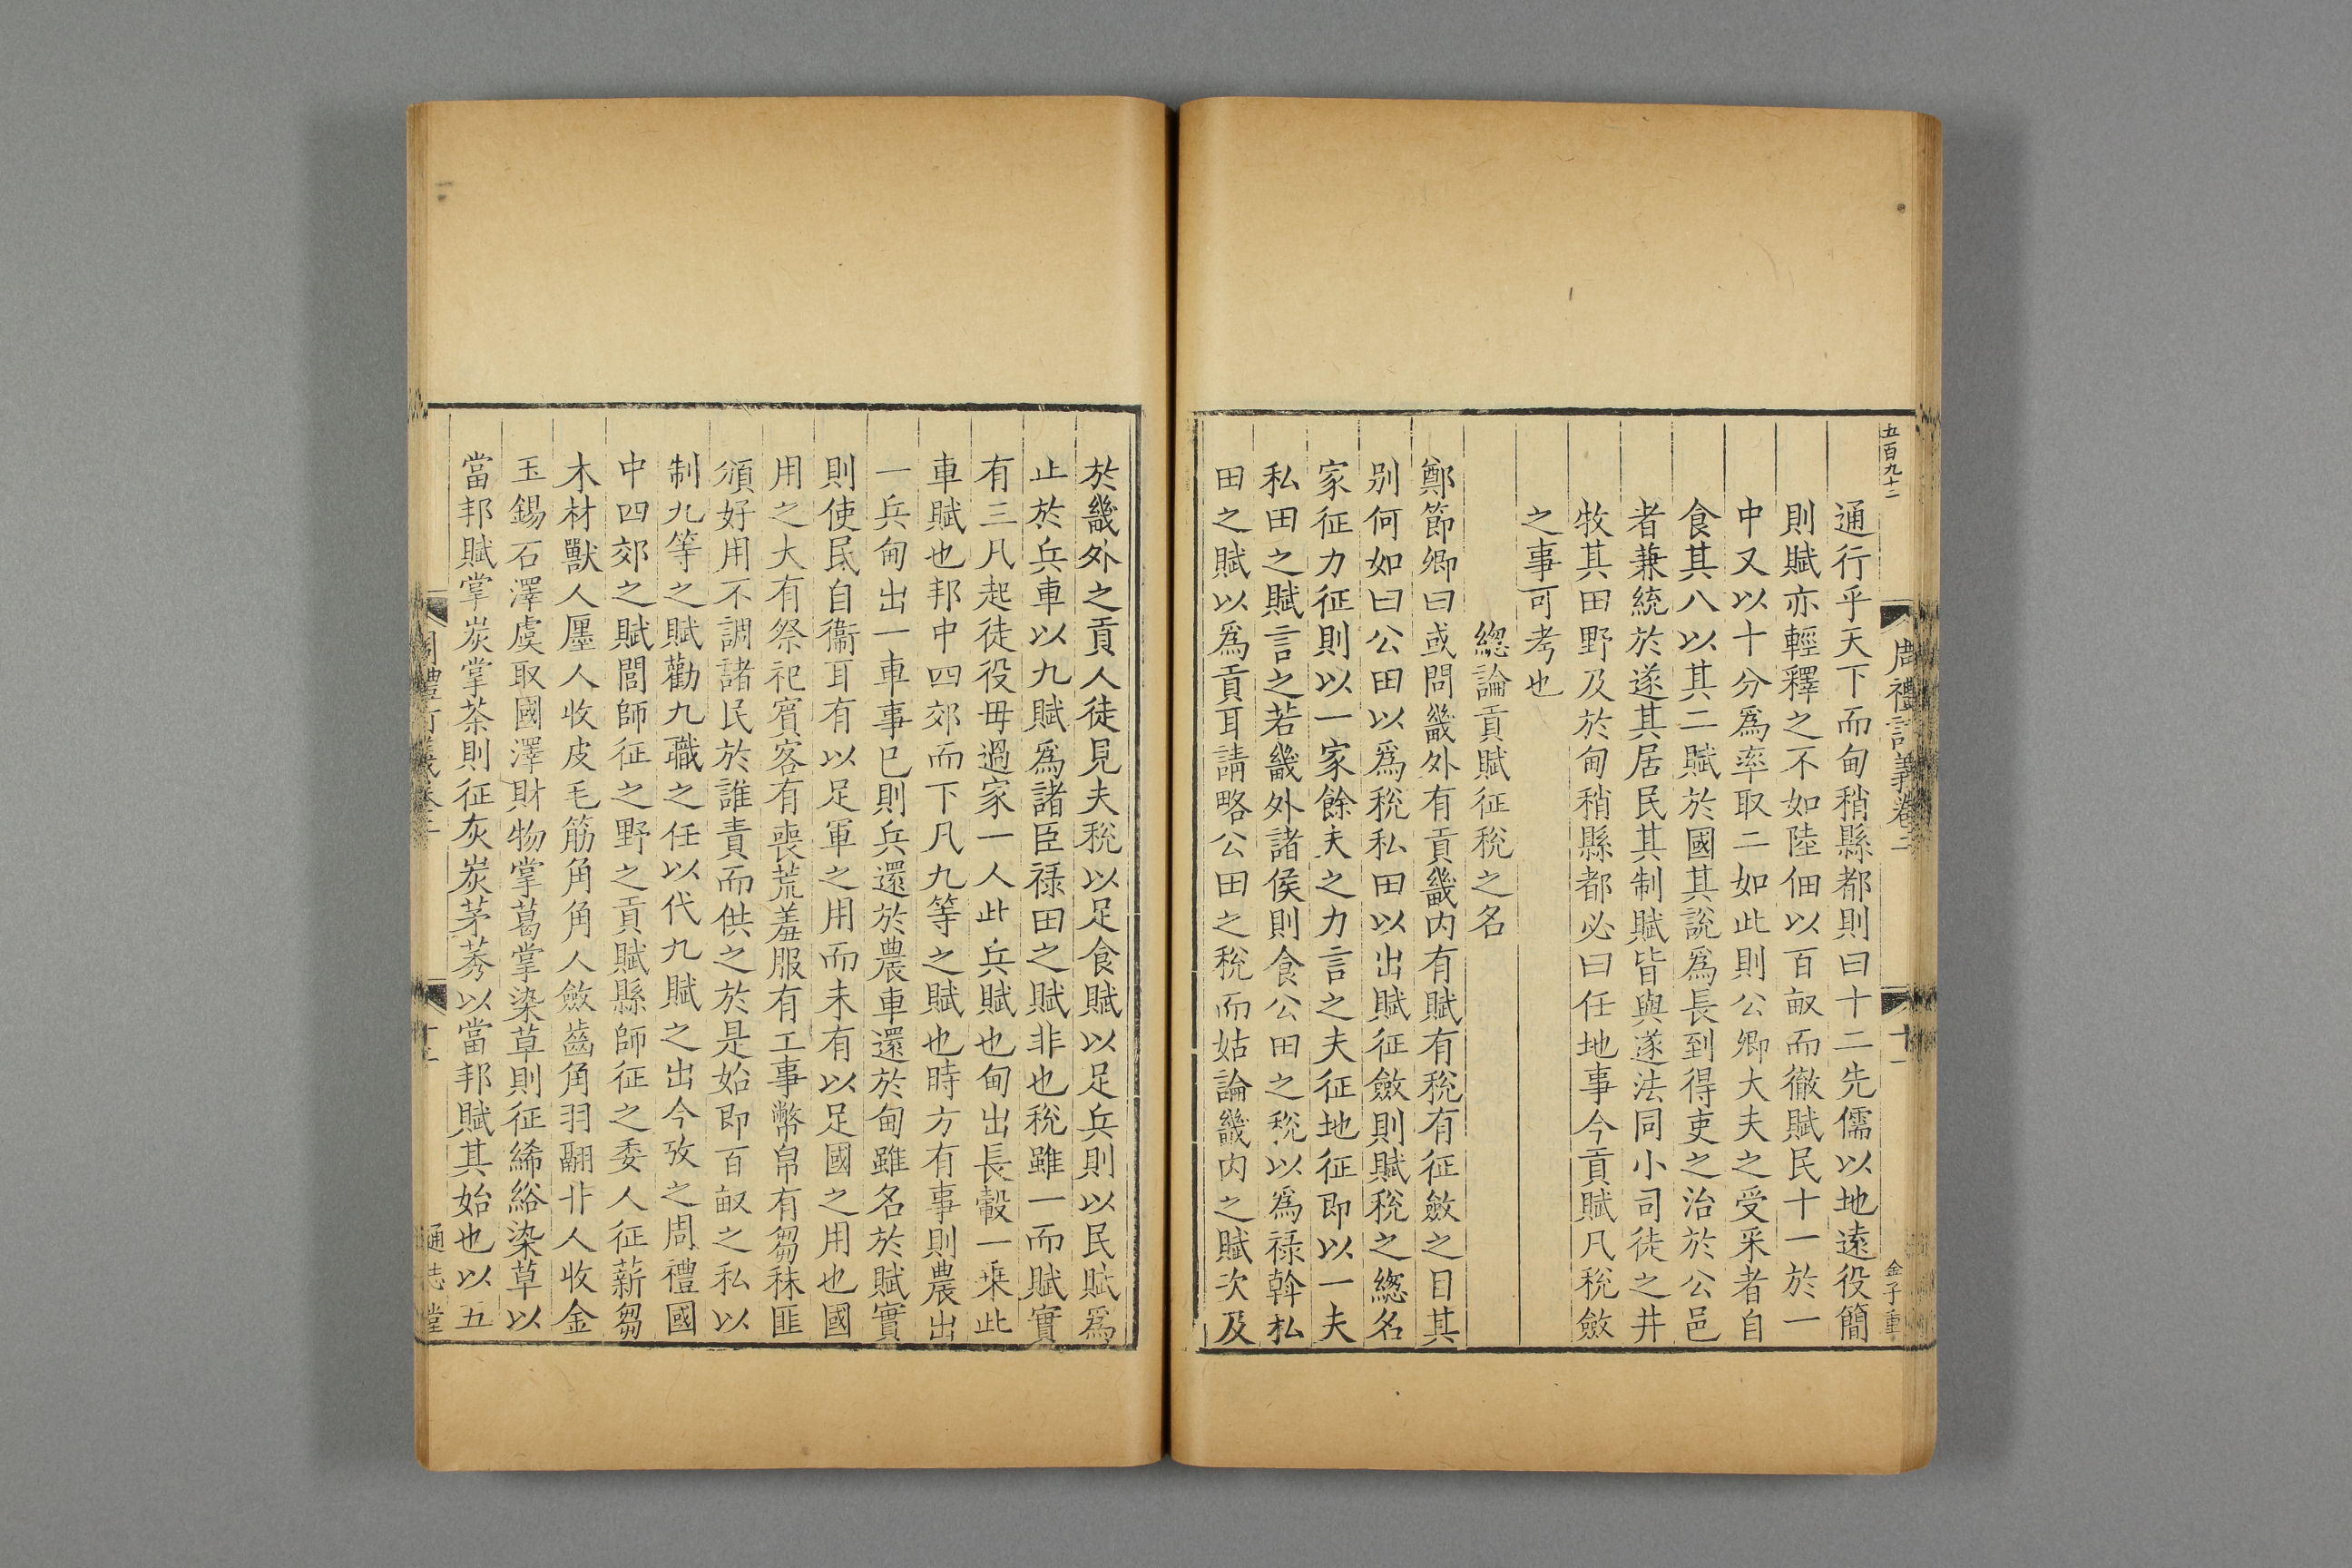 五百九十二
周禮訂義卷二
十一
金子重
通行乎天下而甸稍縣都則曰十二先儒以地遠役簡
則賦亦輕釋之不如陸佃以百畝而徹賦民十一於一
中又以十分爲率取二如此則公卿大夫之受采者自
食其八以其二賦於國其說爲長到得吏之治於公邑
者兼統於遂其居民其制賦皆與遂法同小司徒之井
牧其田野及於甸稍縣都必曰任地事今貢賦凡稅斂
之事可考也
緫論貢賦征稅之名
鄭節卿曰或問畿外有貢畿内有賦有稅有征斂之目其
别何如曰公田以爲稅私田以出賦征斂則賦稅之緫名
家征力征則以一家餘夫之力言之夫征地征即以一夫
私田之賦言之若畿外諸侯則食公田之稅以爲祿斡私
田之賦以爲貢耳請略公田之稅而姑論畿内之賦次及
於畿外之貢人徒見夫稅以足食賦以足兵則以民賦爲
止於兵車以九賦爲諸臣祿田之賦非也稅雖一而賦實
有三凡起徒役毋過家一人此兵賦也甸出長轂一乗此
車賦也邦中四郊而下凡九等之賦也時方有事則農出
一兵甸出一車事已則兵還於農車還於甸雖名於賦實
則使民自衞耳有以足軍之用而未有以足國之用也國
用之大有祭祀賓客有喪荒羞服有工事幣帛有芻秣匪
頒好用不調諸民於誰責而供之於是始即百畝之私以
制九等之賦勸九職之任以代九賦之出今攷之周禮國
中四郊之賦閭師征之野之貢賦縣師征之委人征薪芻
木材獸人廛人收皮毛筋角角人斂齒角羽翮丱人收金
玉錫石澤虞取國澤財物掌葛掌染草則征絺綌染草以
當邦賦掌炭掌荼則征灰炭茅莠以當邦賦其始也以五
通志堂